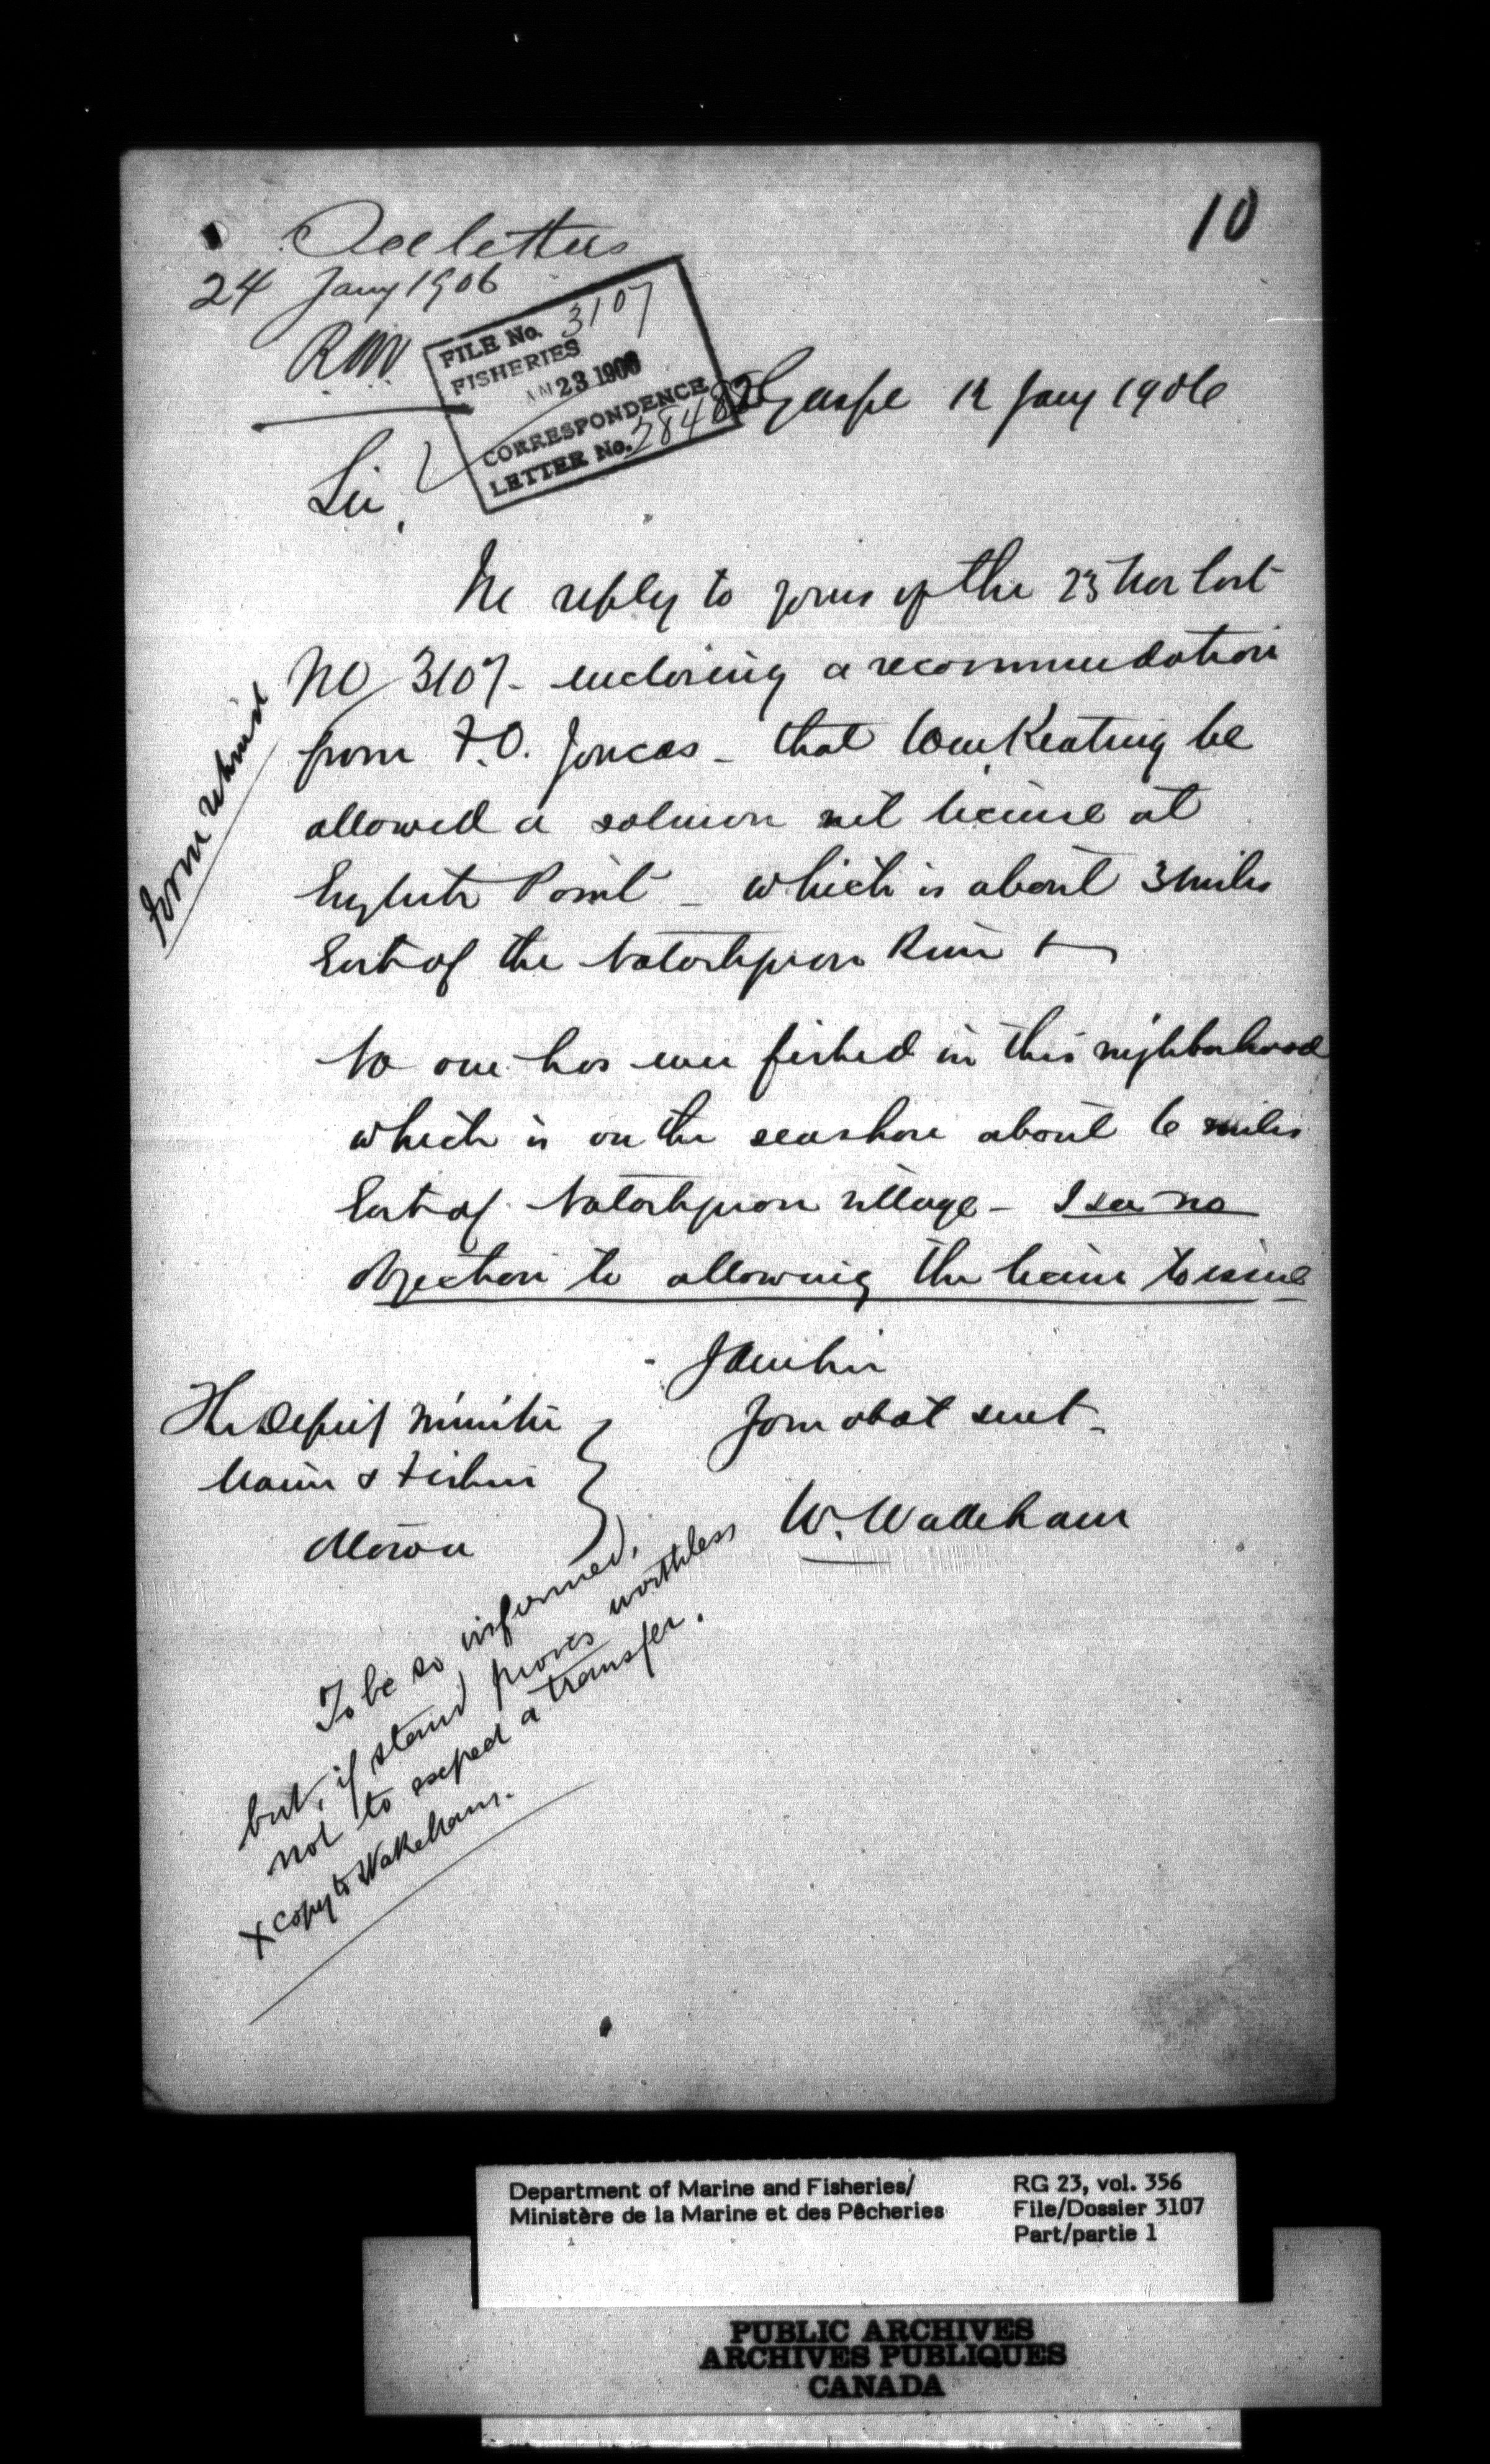 10
See letters
24 Jany 1906
RNV
FILE No. 3107
FISHERIES
JAN 23 1906
CORRESPONDENCE
LETTER No. 28482
Gaspe 12 Jany 1906
Sir,
In reply to yours of the 23 Nov last
No 3107 - enclosing a recommendation
from F.O. Joncas - that Wm Keating be
allowed a salmon net license at
Point - which is about 3 miles
East of the Natashquon River +
No one has ever fished in this neighborhood
which is on the seashore about 6 miles
East of Natashquon village - I see no
objection to allowing the license to issue
I am Sir
Your obdt servt -
W. Wakeham
The Deputy Minister
Marine & Fisheries
Ottawa
form
To be so informed,
but, if stand proves worthless
not to expect a transfer.
X copy to Wakeham.
Department of Marine and Fisheries/
Ministère de la Marine et des Pêcheries
RG 23, vol. 356
File/Dossier 3107
Part/partie 1
PUBLIC ARCHIVES
ARCHIVES PUBLIQUES
CANADA